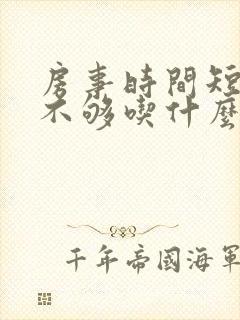 房事時間短
不够喫什麽
千年帝國海軍